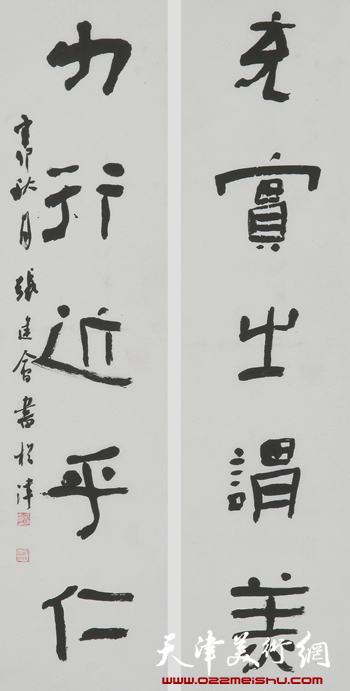 充實之謂美
力行近乎仁
辛卯秋月張建會書於津
天津美術網
www.022meishu.com